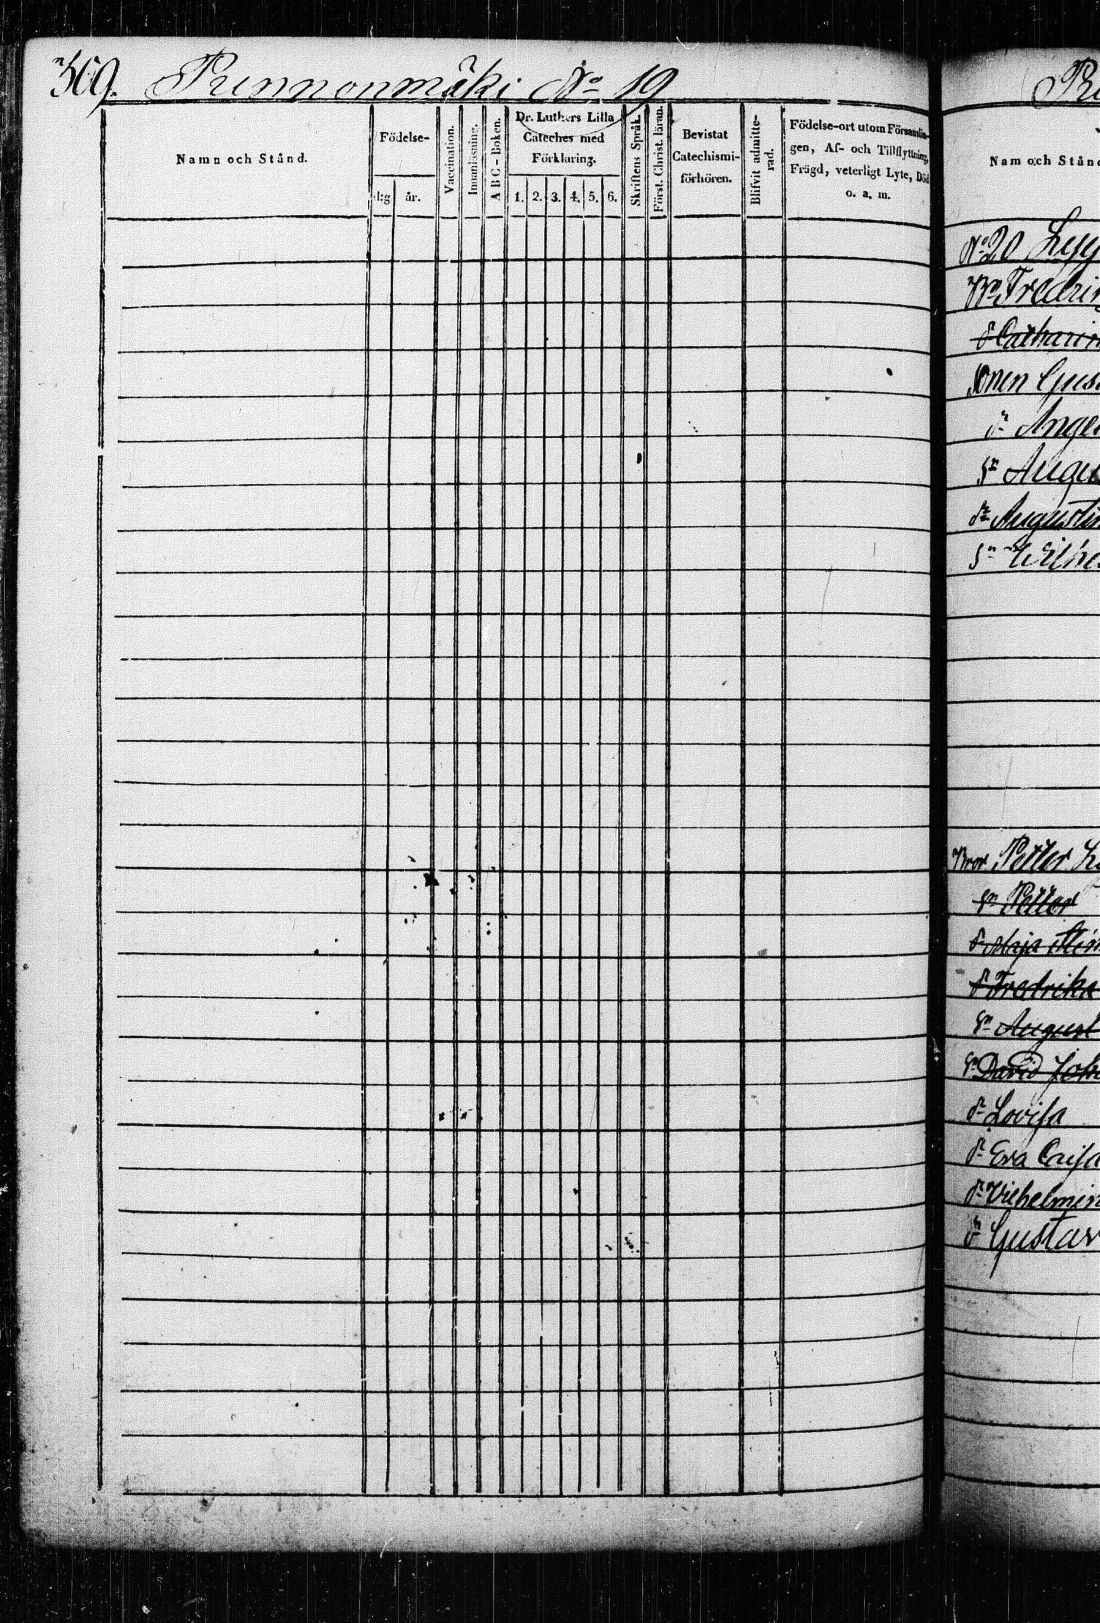 369. Runnonmäki No 19
Namn och Stånd.
Födelse-
dag år.
Vaccination.
Innanläsning.
ABC-Boken.
Dr. Luthers Lilla
Cateches med
Förklaring.
1. 2. 3. 4. 5. 6.
Skriftens Språk.
Först. Christ. läran.
Bevistat
Catechismi-
förhören.
Blifvit admitte-
rad.
Födelse-ort utom Församlin-
gen, Af- och Tillflyttning,
Frägd, veterligt Lyte, Död
o. a. m.
Nam och Stånd
No 20
dr Catharin
sonen Gus
dr Ange
sn Augu
dr Augustin
sn Wilhe
Bror Petter
sn Petter
dr Maja Stin
dr Fredrika
sn August
sn David Joh
dr Lovisa
dr Eva Caisa
dr Vilhelmin
sn Gustav